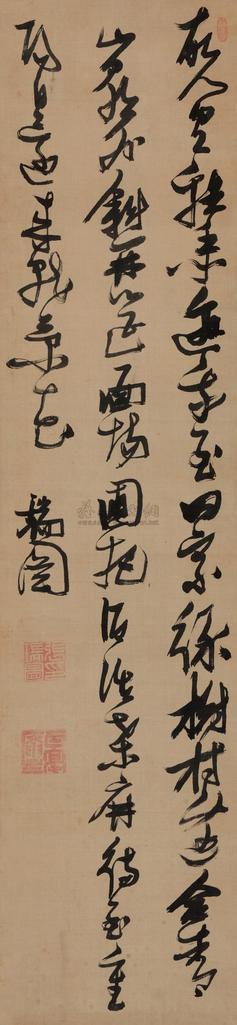 故人具雞黍邀我至田家綠樹村邊合青
山郭外斜開筵面場圃把酒話桑麻待到重
陽日還來就菊花
瑞圖